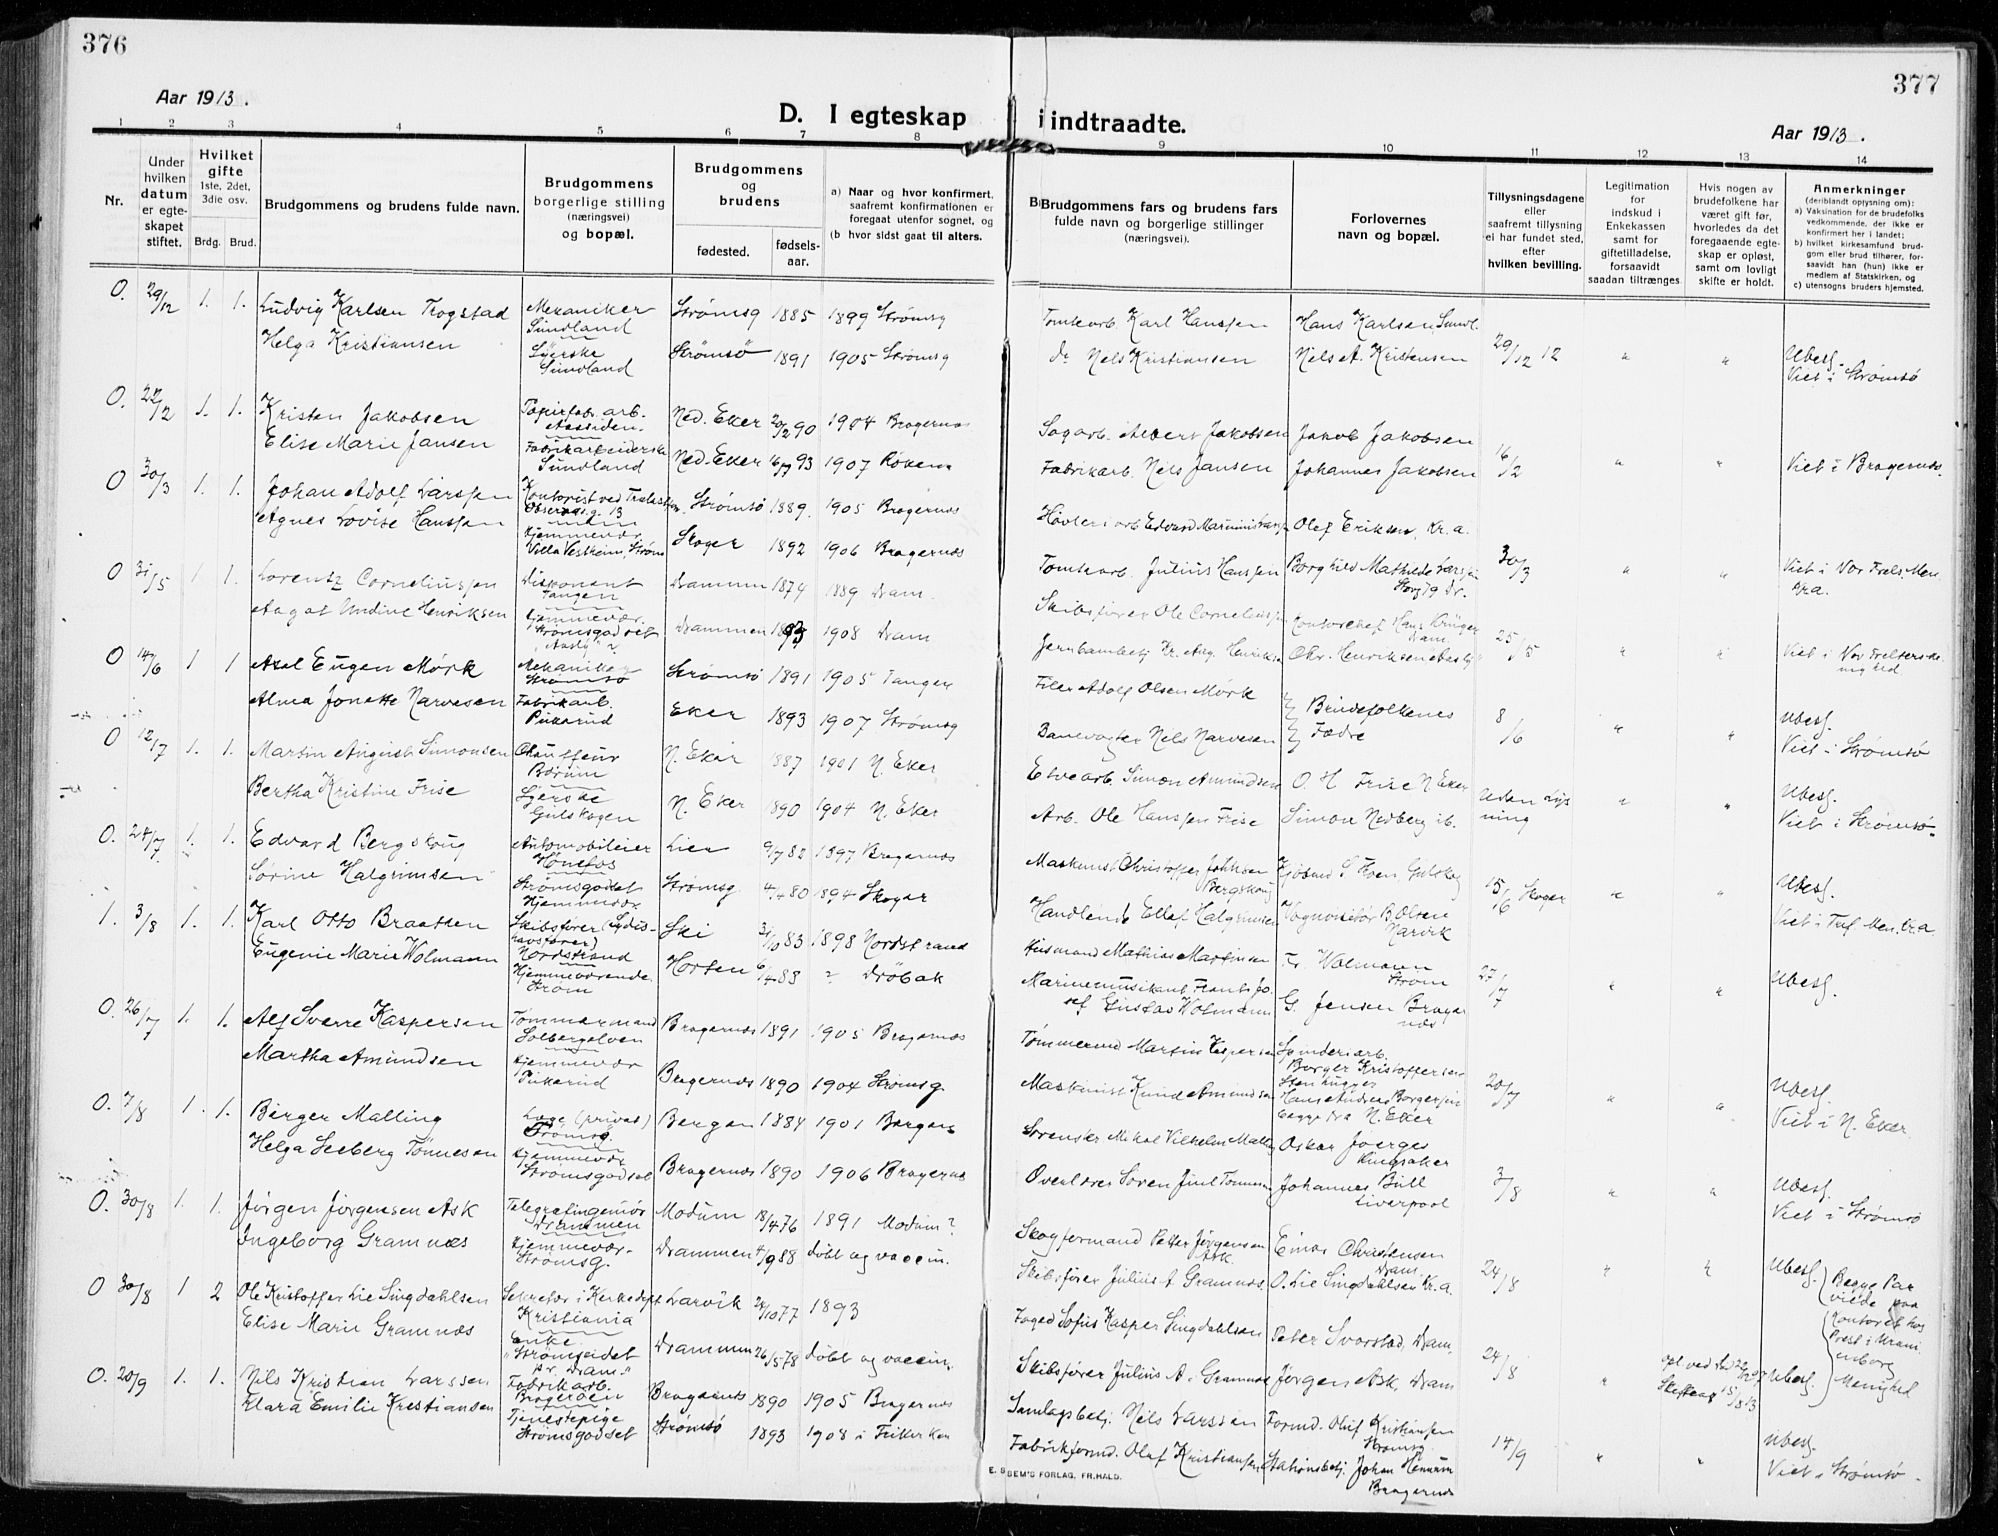 376
Aar 1913.
D. I egteskap
1 2 3 4 5 6 7 8
Nr.
Under hvilken datum er egteskapet stiftet.
Hvilket gifte 1ste, 2det, 3die osv.
Brdg. Brud.
Brudgommens og brudens fulde navn.
Brudgommens borgerlige stilling (næringsvei) og bopæl.
Brudgommens og brudens
fødested. fødselsaar.
a) Naar og hvor konfirmert, saafremt konfirmationen er foregaat utenfor sognet, og
(b hvor sidst gaat til alters.
0. 29/12 1. 1. Ludvig Karlsen Trogstad Mekaniker Sundland Strømsg 1885 1899 Strømsg
Helga Kristiansen Syerske Sundland Strømsö 1891 1905 Strømsg
0. 22/2 1. 1. Kristen Jakobsen Papirfab. arb. Aassiden Ned. Eker 20/2 90 1904 Bragernæs
Elise Marie Jansen Fabrikarbeiderske Sundland Ned. Eker 16/7 93 1907 Røken
0 30/3 1. 1. Johan Adolf Larssen Kontorist ved Obserwg. 13 Strømsö 1889. 1905 Bragernæs
Agnes Lovise Hanssen Hjemmevær. Villa Vestheim, Strøms Skoger 1892 1906 Bragernæs
0 31/5 1 1. Lorentz Corneliussen Diskonent Tangen Drammen 1874 1889 Dram.
Aagot Undine Henriksen Hjemmevær. Strømsgodset Drammen 1893 1908 Dram
0 14/6 1 1 Axel Eugen Mörk Mekaniker Strømsö Strømsö 1891 1905 Tangen
Alma Jonette Narvesen Fabrikarb. Pukerud Eker 1893 1907 Strømsg
0 12/7 1. 1. Martin August Simonsen Chauffeur Bærum N. Eker 1887 1901 N. Eker
Bertha Kristine Frise Syerske Gulskogen N. Eker 1890 1904 N. Eker
0. 24/7 1. 1. Edvard Bergskaug Automobileier Hønefos Lier 9/7 82 1897 Bragernæs
Sørine Halgrimsen Strømsgodset Hjemmevær Strømsg 4/4 80 1894 Skoger
1. 3/8 1. 1. Karl Otto Braathen Skibsfører (Sydishavsfører) Nordstrand Ski 31/10 83 1898 Nordstrand
Eugenie Marie Wolmann Hjemmeværende Strøm Horten 6/4 83 ? Dröbak
0. 26/7 1. 1. Alf Sverre Kaspersen Tømmermand Solbergelven Bragernæs 1891 1905 Bragernæs
Martha Amundsen Hjemmevær Pukerud Bragernæs 1890 1904 Strømsg.
0. 7/8 1. 1. Birger Malling Læge (privat) Strømsg. Bergen 1884 1901 Bergen
Helga Seeberg Tönnesen Hjemmevær Strømsgodset Bragernæs 1890 1906 Bragernæs
0. 30/8 1. 1. Jørgen Jørgensen Ask Telegrafingeniør Drammen Modum 18/4 76 1891 Modum?
Ingeborg Gramnæs Hjemmevær. Strømsg. Drammen 4/9 88 døbt og vaccin.
0 30/8 1 2 Ole Kristoffer Lie Singdahlsen Sekretær i Kirkedept Kristiania Larvik 24/10 77 1893
Elise Marie Gramnæs Enke "Strømseidet pr. Dram." Drammen 26/5 78 døbt og vaccin.
0. 20/9 1. 1. Nils Kristian Larssen Fabrikarb. Brageröen Bragernæs 1890 1905 Bragernæs
Klara Emilie Kristiansen Tjenestepige Strømsgodset Strømsö 1893 1908 i Frikirken
377
Aar 1913.
i indtraadte.
9 10 11 12 13 14
Brudgommens fars og brudens fars fulde navn og borgerlige stillinger (næringsvei).
Forlovernes navn og bopæl.
Tillysningsdagene eller saafremt tillysning ei har fundet sted, efter hvilken bevilling.
Legitimation for indskud i Enkekassen samt for giftetilladelse, forsaavidt saadan tiltrænges.
Hvis nogen av brudefolkene har været gift før, hvorledes da det foregaaende egteskap er opløst, samt om lovligt skifte er holdt.
Anmerkninger (deriblandt oplysning om):
a) Vaksination for de brudefolks vedkommende, der ikke er konfirmert her i landet;
b) hvilket kirkesamfund brudgom eller brud tilhører, forsaavidt han (hun) ikke er medlem af Statskirken, og
c) utensogns bruders hjemsted.
Tomtearb. Karl Hanssen Hans Karlsen Sundl.
do Nels Kristiansen Nels A. Kristensen 29/12 12 " " Ubesf. Viet i Strømsö
Sagarb. Albert Jakobsen Jakob Jakobsen
Fabrikarb. Nils Jansen Johannes Jakobsen 16/2 " " Viet i Bragernæs.
Høvleriarb Edvard Olef Eriksen, Kr.a.
Tomtearb. Julius Hanssen Borghild Mathilde Larssen 30/3 " " Viet i Vor Frels. Men. Kr.a.
Skibsfører Ole Corneliussen Kontorchef Hans Krüger Dram
Jernbanebetj. Kr. Aug. Henriksen Chr. Henriksen 25/5 " " Viet i Vor Frelsers menighed
Filer Adolf Olsen Mørk } Brudefolkenes
Banevogter Nels Narvesen } Fædre 8/6 " " Ubesf. Viet i Strømsö
Elvearb. Simon Amundsen O. H Frise N Eker
Arb. Ole Hanssen Frise Simon Nedberg ib. Uden Lysning " " Ubesf. Viet i Strømsö.
Maskinist Christoffer Bergskaug
Handlende Ellef Halgrimsen B. Olsen Narvik 15/6 Skoger " " Ubesf. Viet i Tref. Men. Kr.a.
Husmand Mathias Martinsen Fr. Wolmann Strøm
Marinemusikant Frants Josef Gustav Wolmann G. Jensen Bragernæs 27/7 " " Ubesf.
Tömmermd Martin Kaspersen Spinderiarb. Borger Kristoffersen
Maskinist Knud Amundsen Hans Andreas Borgersen begge fra N. Eker 20/7 " " Ubesf. Viet i N. Eker.
Sorenskr. Mikal Vilhelm Malling Oskar Joerges Ringsaker
Overlærer Søren Juul Tönnesen Johannes Bull Liverpool 3/8 " " Ubesf. Viet i Strømsö
Skogformand Petter Jörgensen Ask Einar Christensen Dram.
Skibsfører Julius A Gramnæs. O. Lie Singdahlsen Kr.a. 24/8 " " Ubesf.
Foged Sofus Kasper Singdahlsen Peter Svarstad, Dram.
Skibsfører Julius A. Gramnæs Jørgen Ask, Dram 24/8 " Ubesf.
Begge Par viede paa Kontoret hos Prest i Uranienborg Menighed
Samlagsbetj. Nils Larssen Formd. Oluf Kristiansen Strømsg.
Fabrikformd. Olaf Kristiansen Stationsbetj. Johan Hennum Bragernæs 14/9 " " Ubesf. Viet i Strømsö.
E. SEM'S FORLAG, FR.HALD.